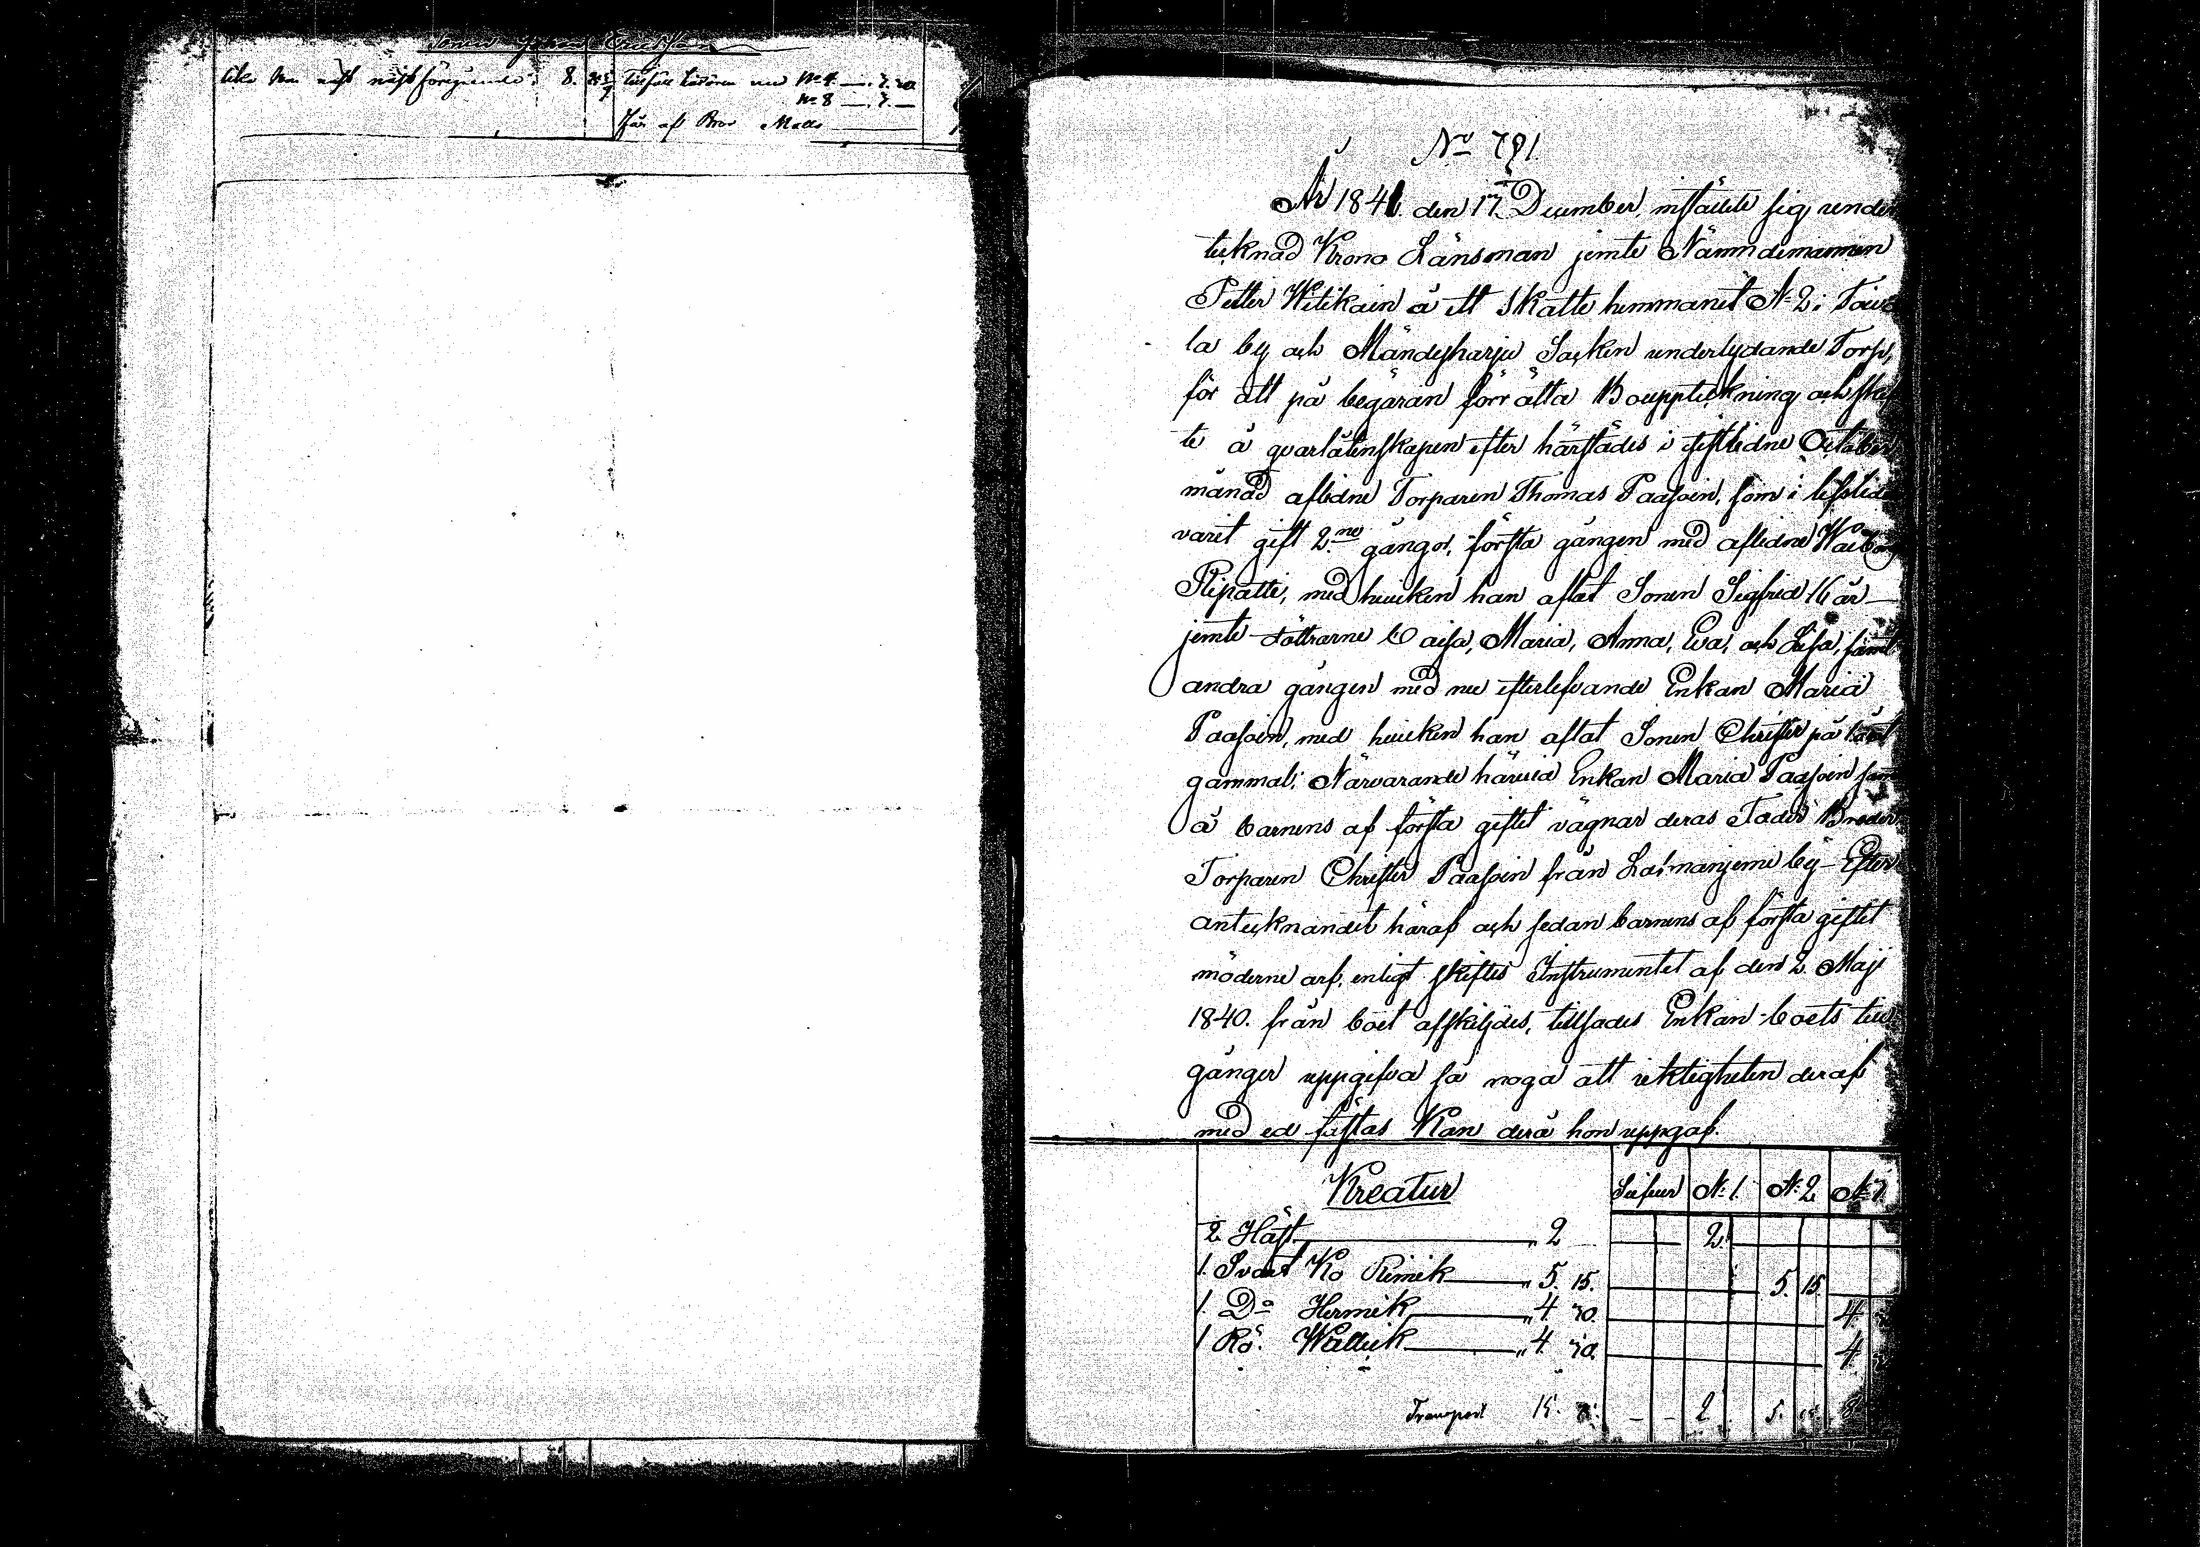 8. tillfaller Lösören uti N:o 4 — . 3. 20.
N:o 8 — . 3. —
får af Bror Matts
N:o 791
År 1841. den 17. December, inställte sig under
tecknad Krono Länsman jemte Nämndemannen
Petter Witikain å ett Skatte hemmanet N:o 2 i Toivo
la by och Mändyharju Socken underlydande Torp,
för att på begäran förrätta Bouppteckning och skif
te å qvarlåtenskapen efter härstädes i sistlidne October
månad aflidne Torparen Thomas Paasoin, som i lifstiden
varit gift 2:ne gånger, första gången med aflidne Walborg
Ripatti, med hvilken han aflat Sonen Sigfrid 16 år
jemte döttrarne Caisa, Maria, Anna, Eva, och Lisa, samt
andra gången med nu efterlefvande Enkan Maria
Paasoin, med hvilken han aflat Sonen Christer på
gammal; Närvarande härvid Enkan Maria Paasoin samt
å barnens af första giftet vägnar deras Fader Broder
Torparen Christer Paasoin från Lasmanjemi by Efter
antecknandet häraf och sedan barnens af första giftet
möderne arf, enligt skiftes Instrumentet af den 2 Maji
1840. från boet afskiljdes, tillsades Enkan boets till
gånger uppgifva så noga att riktigheten deraf
med ed fästas Kan derå hon uppgaf.
Kreatur N:o 1. N:o 2 N:o 3.
2 Häst „ 2 2
1. Svart Ko Rimik „ 5. 15. 5. 15.
1. D:o Hermik „ 4 30. 4
1 Rö. Wallick „ 4. 30. 4
Transport 15. 2 5. 15 8